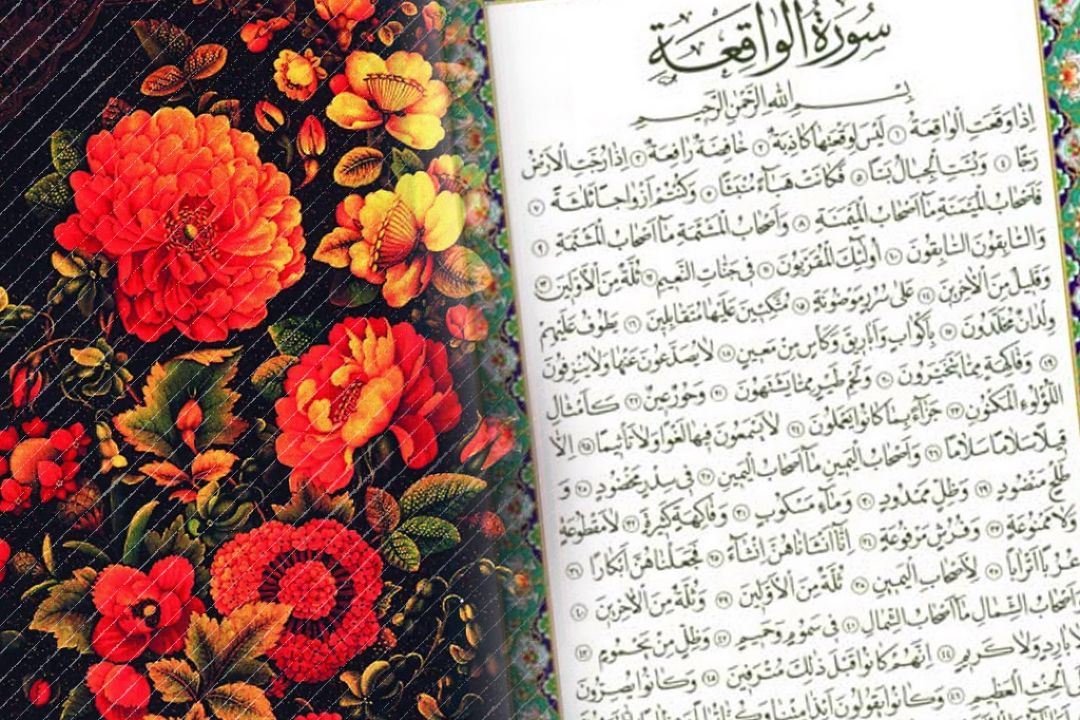 سُورَةُ الْوَاقِعَةِ
بِسْمِ اللهِ الرَّحْمٰنِ الرَّحِيمِ
اِذَا وَقَعَتِ الْوَاقِعَةُ ١ لَيْسَ لِوَقْعَتِهَا كَاذِبَةٌ ٢ خَافِضَةٌ رَافِعَةٌ ٣ اِذَا رُجَّتِ الْاَرْضُ
رَجًّا ٤ وَبُسَّتِ الْجِبَالُ بَسًّا ٥ فَكَانَتْ هَبَاءً مُنْبَثًّا ٦ وَكُنْتُمْ اَزْوَاجًا ثَلٰثَةً ٧
فَاَصْحَابُ الْمَيْمَنَةِ مَا اَصْحَابُ الْمَيْمَنَةِ ٨ وَاَصْحَابُ الْمَشْئَمَةِ مَا اَصْحَابُ الْمَشْئَمَةِ ٩
وَالسَّابِقُونَ السَّابِقُونَ ١٠ اُولٰئِكَ الْمُقَرَّبُونَ ١١ فِي جَنَّاتِ النَّعِيمِ ١٢ ثُلَّةٌ مِنَ الْاَوَّلِينَ ١٣
وَقَلِيلٌ مِنَ الْاٰخِرِينَ ١٤ عَلٰى سُرُرٍ مَوْضُونَةٍ ١٥ مُتَّكِئِينَ عَلَيْهَا مُتَقَابِلِينَ ١٦ يَطُوفُ عَلَيْهِمْ
وِلْدَانٌ مُخَلَّدُونَ ١٧ بِاَكْوَابٍ وَاَبَارِيقَ وَكَأْسٍ مِنْ مَعِينٍ ١٨ لَا يُصَدَّعُونَ عَنْهَا وَلَا يُنْزِفُونَ
١٩ وَفَاكِهَةٍ مِمَّا يَتَخَيَّرُونَ ٢٠ وَلَحْمِ طَيْرٍ مِمَّا يَشْتَهُونَ ٢١ وَحُورٌ عِينٌ ٢٢ كَاَمْثَالِ
اللُّؤْلُؤِ الْمَكْنُونِ ٢٣ جَزَاءً بِمَا كَانُوا يَعْمَلُونَ ٢٤ لَا يَسْمَعُونَ فِيهَا لَغْوًا وَلَا تَأْثِيمًا ٢٥ اِلَّا
قِيلًا سَلَامًا سَلَامًا ٢٦ وَاَصْحَابُ الْيَمِينِ مَا اَصْحَابُ الْيَمِينِ ٢٧ فِي سِدْرٍ مَخْضُودٍ ٢٨ وَ
طَلْحٍ مَنْضُودٍ ٢٩ وَظِلٍّ مَمْدُودٍ ٣٠ وَمَاءٍ مَسْكُوبٍ ٣١ وَفَاكِهَةٍ كَثِيرَةٍ ٣٢ لَا مَقْطُوعَةٍ
وَلَا مَمْنُوعَةٍ ٣٣ وَفُرُشٍ مَرْفُوعَةٍ ٣٤ اِنَّا اَنْشَأْنَاهُنَّ اِنْشَاءً ٣٥ فَجَعَلْنَاهُنَّ اَبْكَارًا ٣٦
عُرُبًا اَتْرَابًا ٣٧ لِاَصْحَابِ الْيَمِينِ ٣٨ ثُلَّةٌ مِنَ الْاَوَّلِينَ ٣٩ وَثُلَّةٌ مِنَ الْاٰخِرِينَ ٤٠
وَاَصْحَابُ الشِّمَالِ مَا اَصْحَابُ الشِّمَالِ ٤١ فِي سَمُومٍ وَحَمِيمٍ ٤٢ وَظِلٍّ مِنْ يَحْمُومٍ ٤٣
لَا بَارِدٍ وَلَا كَرِيمٍ ٤٤ اِنَّهُمْ كَانُوا قَبْلَ ذٰلِكَ مُتْرَفِينَ ٤٥ وَكَانُوا يُصِرُّونَ
عَلَى الْحِنْثِ الْعَظِيمِ ٤٦ وَكَانُوا يَقُولُونَ اَئِذَا مِتْنَا وَكُنَّا تُرَابًا